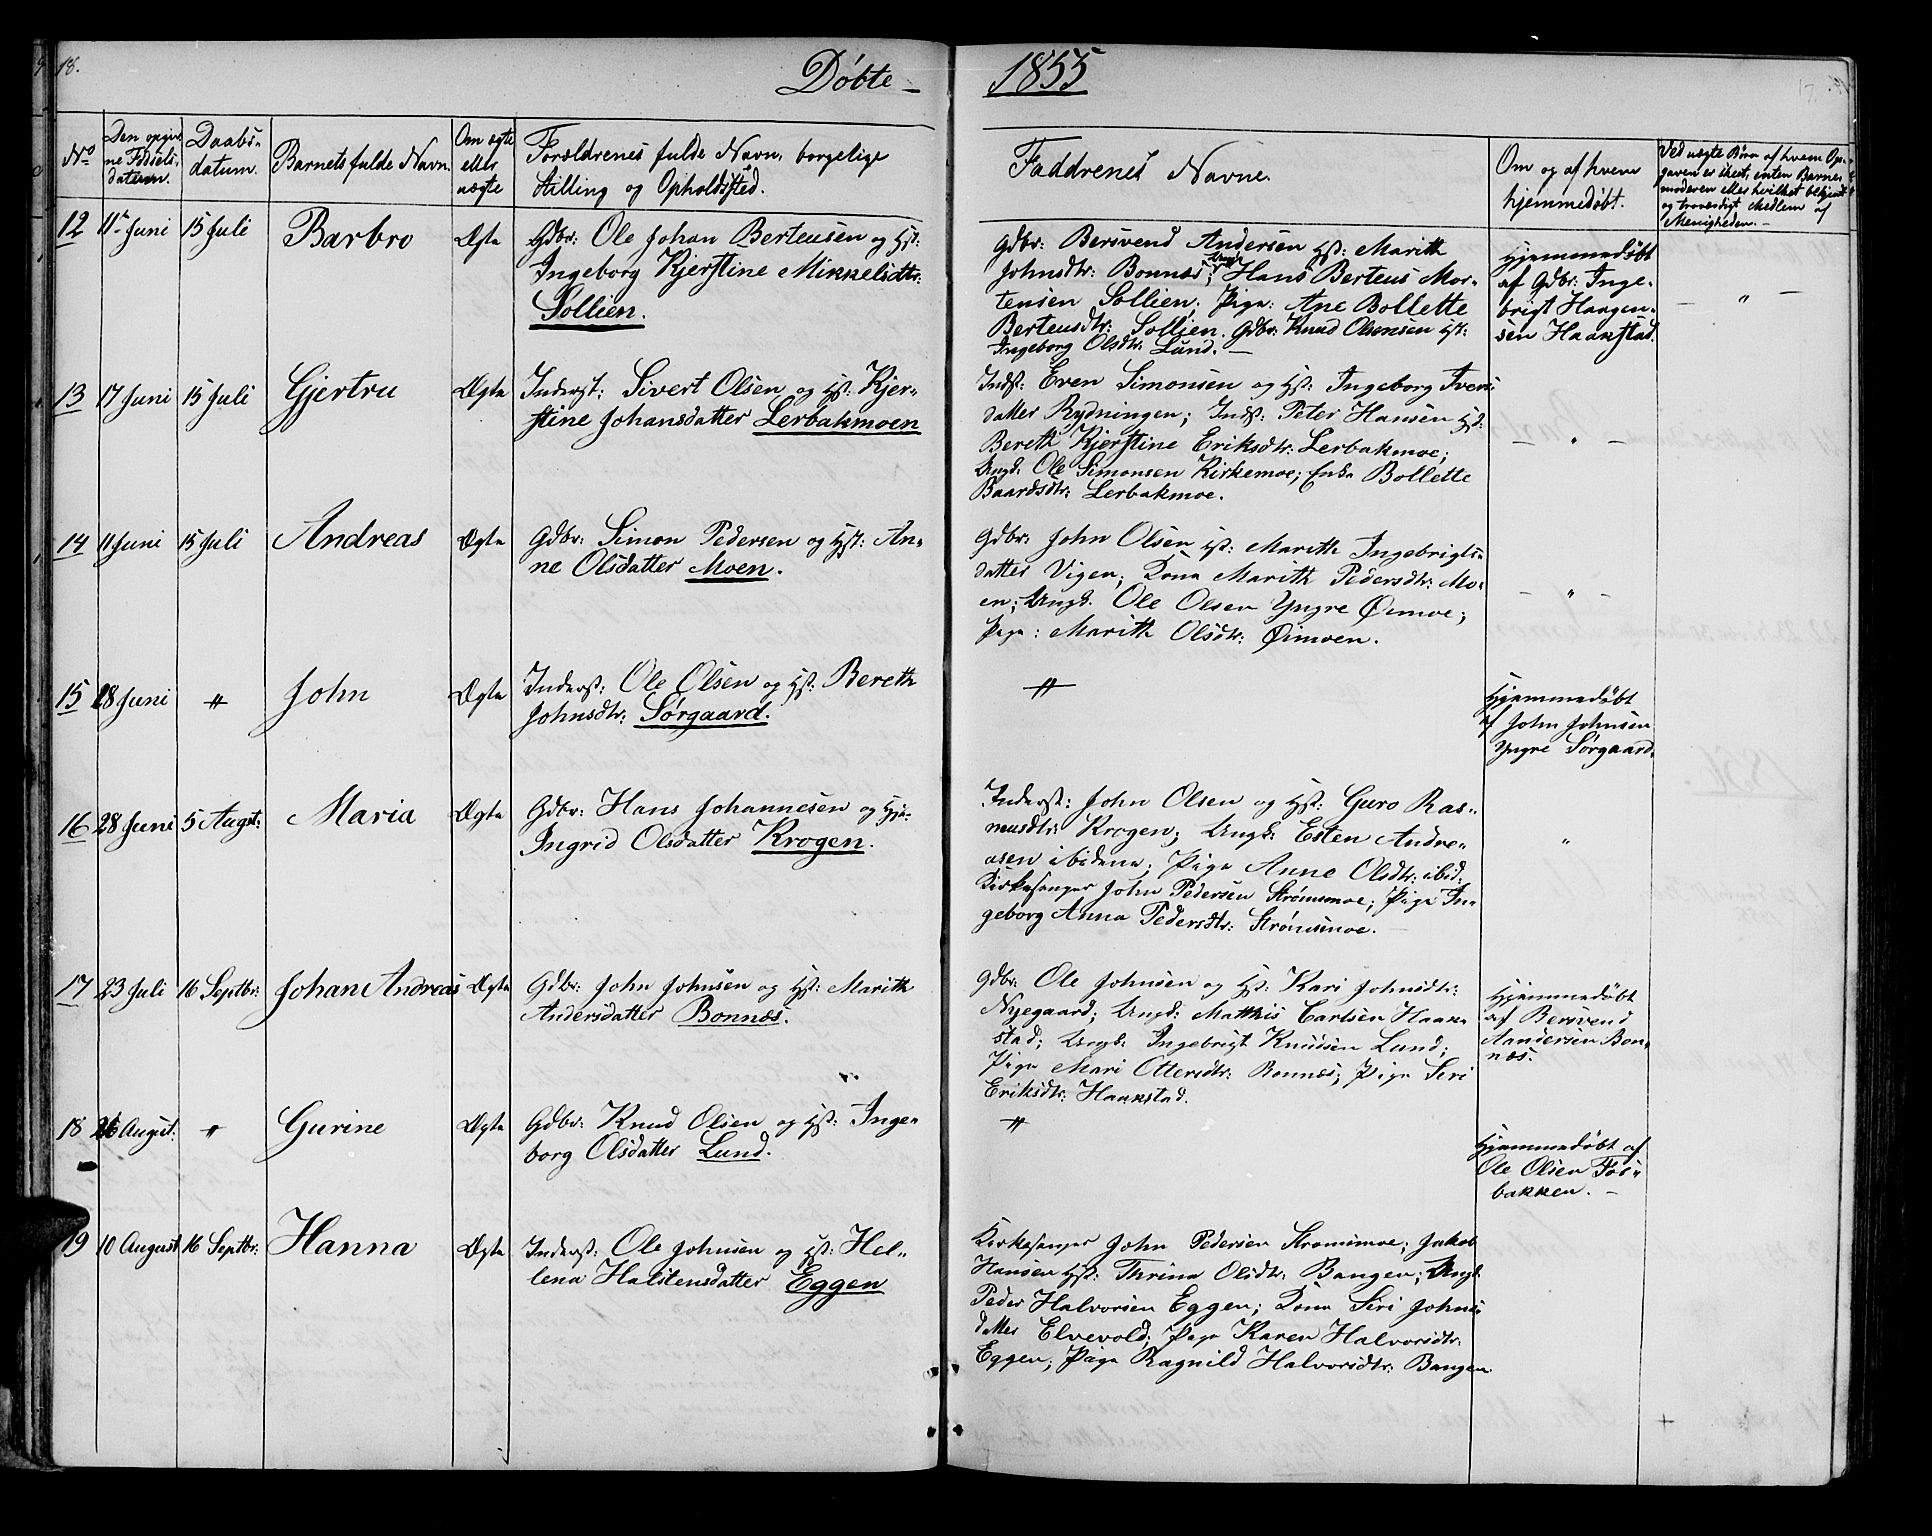 18.
Døbte - 1855
No
Den opgivne Fødselsdatum.
Daabsdatum.
Barnets fulde Navn.
Om ægte eller uægte
Forældrenes fulde Navn, borgelige
Stilling og Opholdssted.
Faddrenes Navne.
Om og af hvem
hjemmedøbt.
Ved uægte Børn af hvem Op-
gaven er skeet, enten Barne-
moderen eller hvilket bekjendt
og troværdigt Medlem af
Menigheden. -
12 11te Juni 15 Juli Barbro Ægte Gdbr: Ole Johan Berteusen og Hst:
Ingeborg Kjerstine Mikkelsdtr:
Sollien.
Gdbr: Bersvend Andersen Hst: Marith
Johnsdtr: Bonnæs; Ungk: Hans Berteus Mor-
tensen Sollien; Pige: Ane Bollette
Berteusdtr: Sollien. Gdbr: Knud Olsensen Hst:
Ingeborg Olsdtr: Lund. -
Hjemmedøbt
af Gdbr: Inge-
brigt Haagen-
sen Haakstad.
- " -
13 17 Juni 15 Juli Gjertru Ægte Inderst: Sivert Olsen og Hst: Kjer-
stine Johansdatter Lerbakmoen
Indst: Even Simonsen og Hst: Ingeborg Ivers-
datter Rydningen; Indst: Peter Hansen Hst:
Bereth Kjerstine Eriksdtr: Lerbakmoe;
Ungk: Ole Simonsen Kirkemoe; Enke Bollette
Baardsdtr: Lerbakmoe.
- " -
14 11 Juni 15 Juli Andreas Ægte Gdbr: Simon Pedersen og Hst: An-
ne Olsdatter Moen.
Gdbr: John Olsen Hst: Marith Ingebrigts-
datter Vigen; Kone Marith Pedersdtr: Mo-
en; Ungk. Ole Olsen Yngre Øimoe;
Pige: Marith Olsdtr: Øimoen.
- " -
15 28 Juni " John Ægte Inderst: Ole Olsen og Hst: Bereth
Johnsdtr: Sørgaard.
"
Hjemmedøbt
af John Johnsen
Yngre Sørgaard.
16 28 Juni 5 Augst: Maria Ægte Gdbr: Hans Johannesen og Hst:
Ingrid Olsdatter Krogen.
Inderst: John Olsen og Hst: Guro Ras-
musdtr: Krogen; Ungk: Esten Andre-
asen ibidem; Pige Anne Olsdtr: ibid:
Kirkesanger John Pedersen Strømsmoe; Pige In-
geborg Anna Pedersdtr: Strømsmoe. -
"
17 23 Juli 16 Septbr: Johan Andreas Ægte Gdbr: John Johnsen og Hst: Marith
Andersdatter Bonnæs.
Gdbr: Ole Johnsen og Hst: Kari Johnsdtr:
Nygaard; Ungk: Matthis Carlsen Haak-
stad; Ungk: Ingebrigt Knudsen Lund;
Pige Mari Ottersdtr: Bonnæs; Pige Siri
Eriksdtr: Haakstad.
Hjemmedøbt
af Bersvend
Aandersen Bon-
næs.
18 26 August: " Gurine Ægte Gdbr: Knud Olsen og Hst: Inge-
borg Olsdatter Lund.
"
Hjemmedøbt af
Ole Olsen Fos-
bakken. -
19 10 August 16 Septbr: Hanna Ægte Inderst: Ole Johnsen og Hst: Hel-
lena Halstensdatter Eggen
Kirkesanger John Pedersen Stromsmoe; Jakob
Hansen Hst: Thrina Olsdtr: Bangen; Ungk:
Peder Halvorsen Eggen; Kone Siri Johns-
datter Elvevold; Pige Karen Halvorsdtr:
Eggen; Pige Ragnild Halvorsdtr: Bangen.